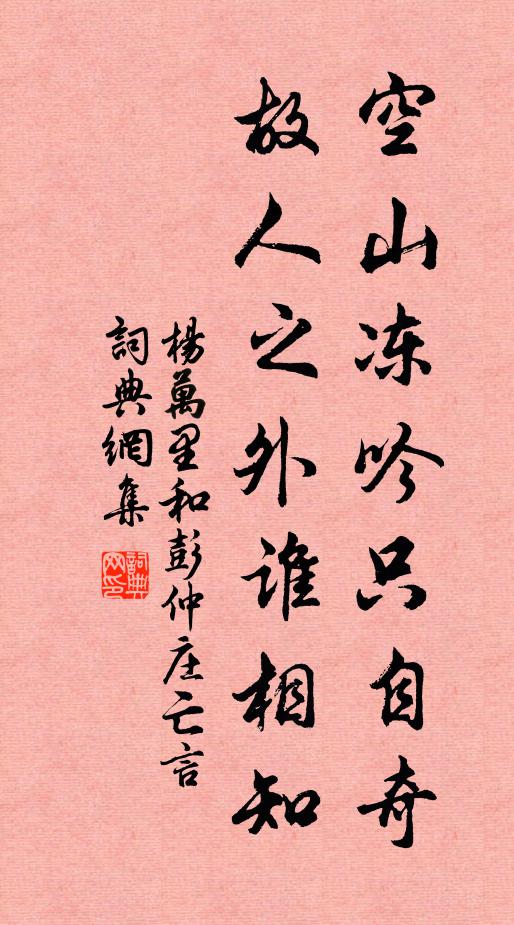 空山冻吟只自奇
故人之外谁相知
楊萬里和彭仲庄亡言
詞典網集
詞典网印